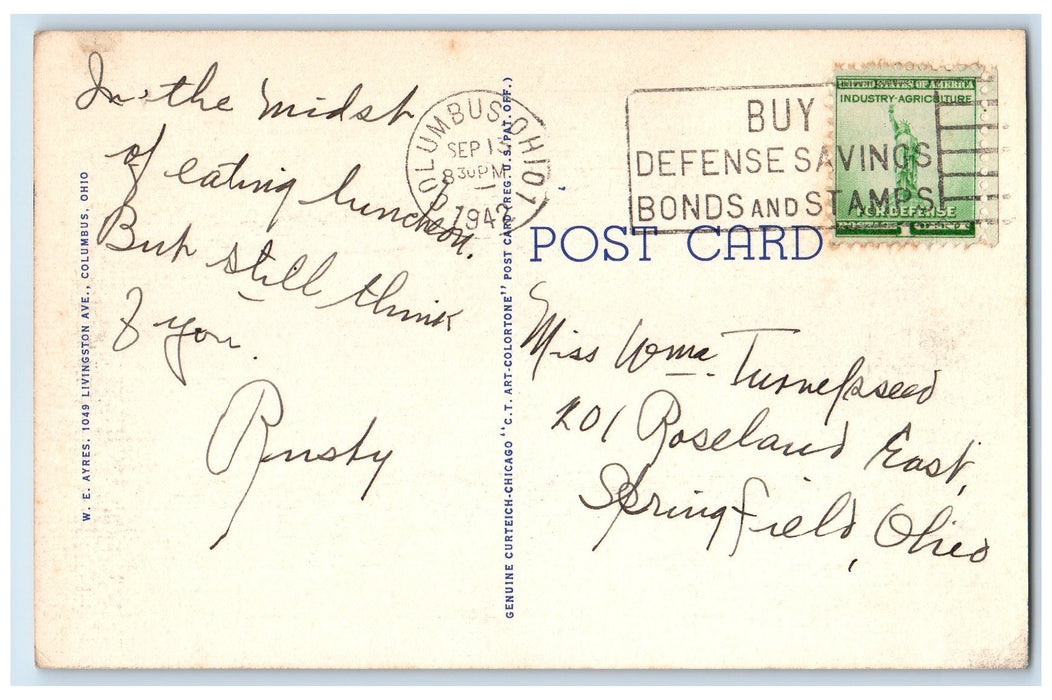 In the midst
of eating luncheon.
But still think
of you.
W. E. AYRES, 1049 LIVINGSTON AVE., COLUMBUS, OHIO
GENUINE CURTEICH-CHICAGO "C.T. ART-COLORTONE" POST CARD (REG. U.S. PAT. OFF.)
COLUMBUS, OHIO
SEP 15
8 30 PM
BUY
DEFENSE SAVINGS
BONDS AND STAMPS
UNITED STATES OF AMERICA
INDUSTRY-AGRICULTURE
FOR DEFENSE
1
POST CARD
Miss Wma. Turnipseed
201 Roseland East,
Springfield, Ohio